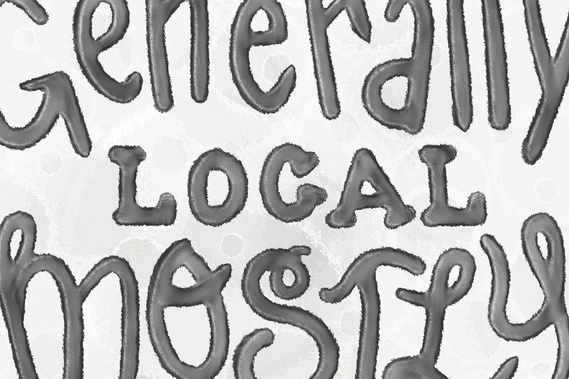 Generally
LOCAL
mOSTLY